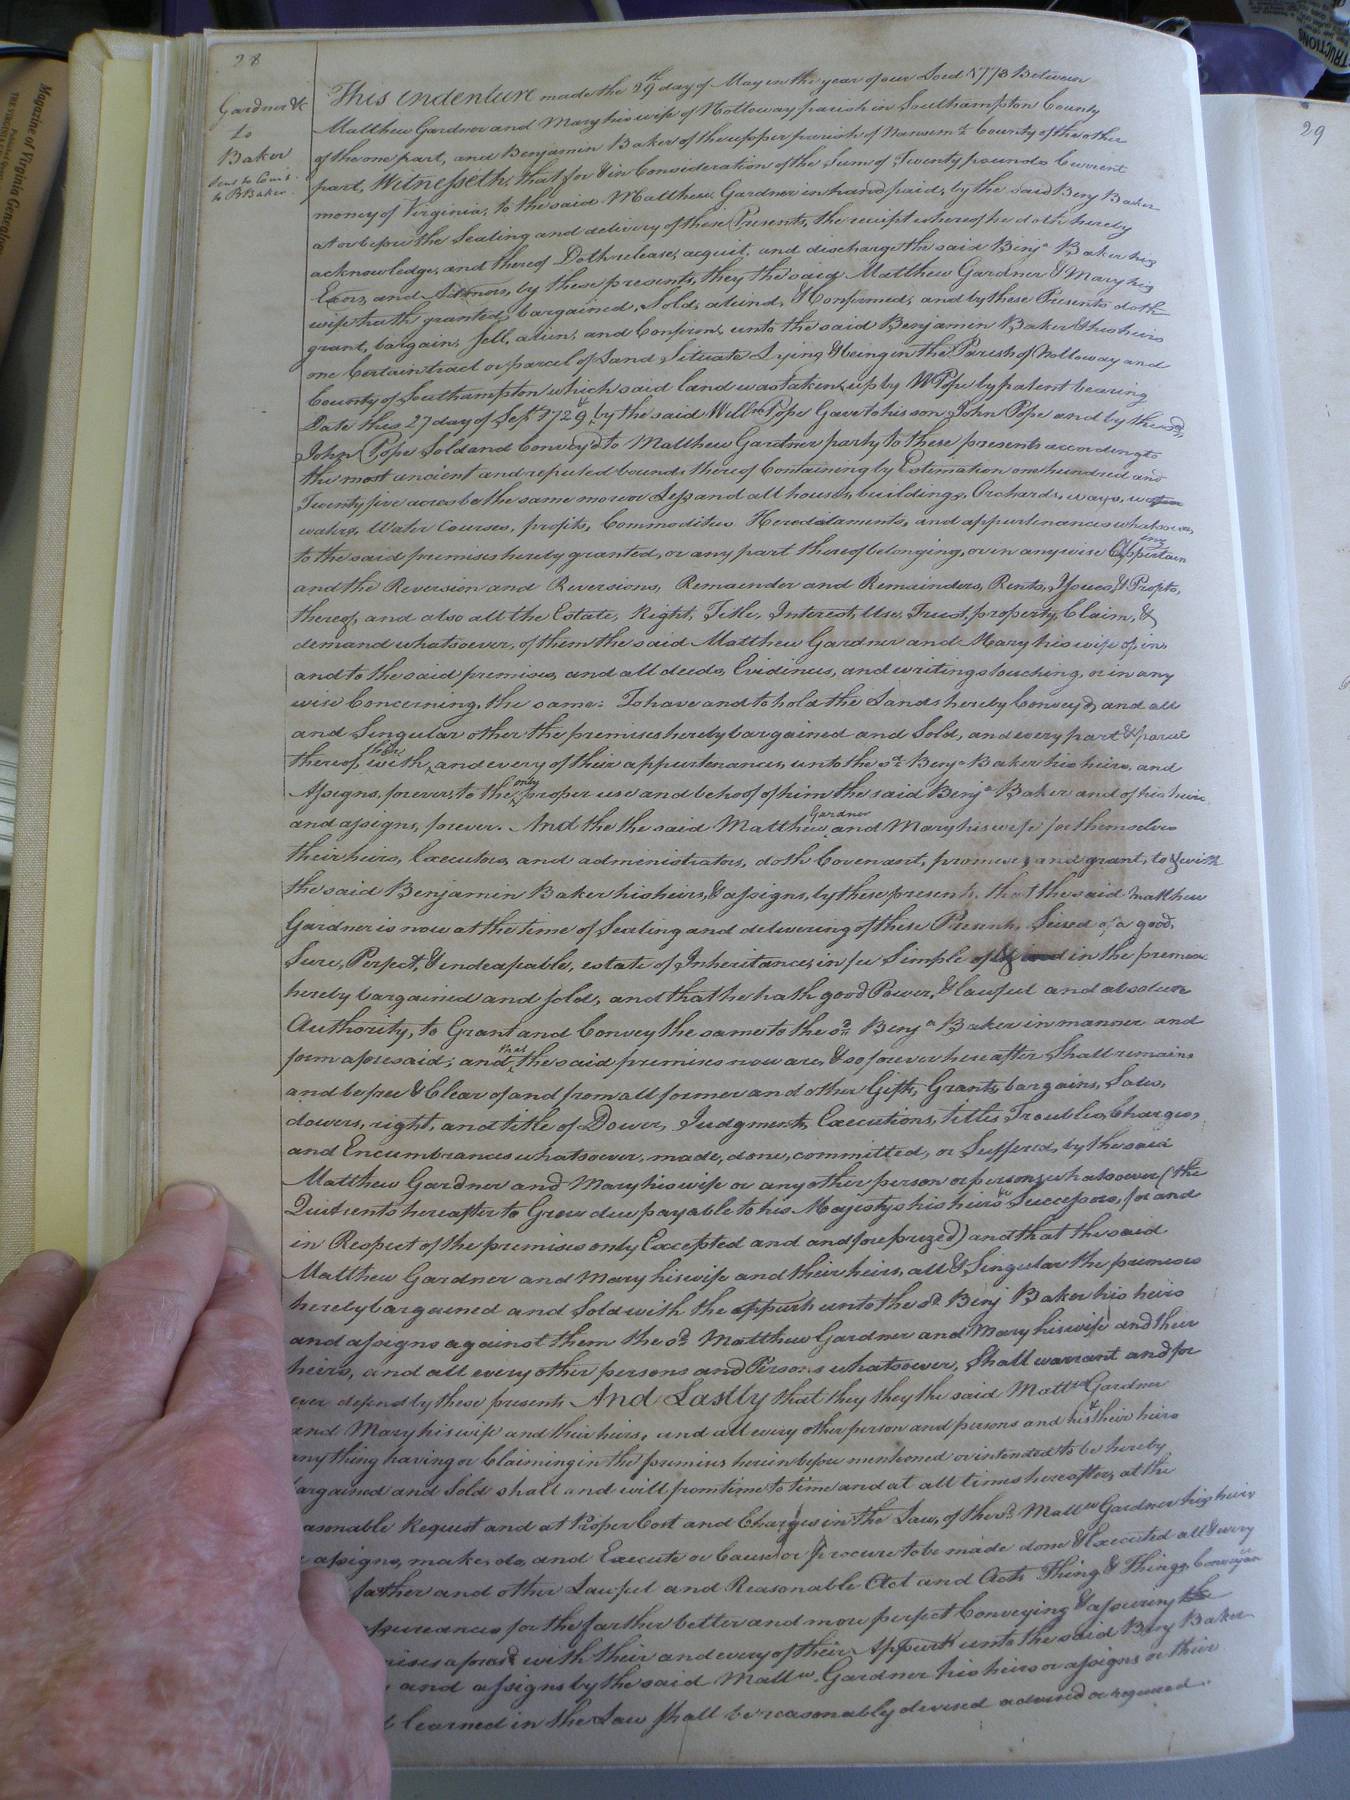 28
Gardner &c
to
Baker
29
This indenture made the 29th day of May in the year of our Lord 1778 Between
Matthew Gardner and Mary his wife of Nottoway parish in Southampton County
of the one part, and Benjamin Baker of the upper parish of Nansemd County of the other
part, Witnesseth, that for & in Consideration of the Sum of Twenty pounds Current
money of Virginia, to the said Matthew Gardner in hand paid, by the said Benj Baker
at or before the Sealing and delivery of these Presents, the receipt whereof he doth hereby
acknowledge, and thereof Doth release, acquit, and discharge the said Benja Baker his
Exors, and Admors, by these presents, they the said Matthew Gardner & Mary his
wife hath granted, bargained, Sold, aliend, & Confirmed, and by these Presents doth
grant, bargain, sell, alien, and Confirm, unto the said Benjamin Baker & his heirs
one Certain tract or parcel of Land Situate Lying & being in the Parish of Nottoway and
County of Southampton which said land was taken up by Wm Pope by patent bearing
Date this 27 day of Sept 1729, & by the said Willm Pope Gave to his son John Pope and by the sd
John Pope Sold and Convey'd to Matthew Gardner party to these presents according to
the most ancient and reputed bounds thereof Containing by Estimation one hundred and
Twenty five acres be the same more or Less and all houses, buildings, Orchards, ways,
waters, Water Courses, profits, Commodities Hereditaments, and appurtenances whatsoever,
to the said premises hereby granted, or any part thereof belonging, or in any wise Appertaining
and the Reversion and Reversions, Remainder and Remainders, Rents, Issues, & Profits,
thereof, and also all the Estate, Right, Title, Interest, Use, Trust, property, Claim, &
demand whatsoever, of them the said Matthew Gardner and Mary his wife of, in,
and to the said premises, and all deeds, Evidences, and writings touching, or in any
wise Concerning, the same: To have and to hold the Lands hereby Convey'd, and all
and Singular other the premises hereby bargained and Sold, and every part & parcel
thereof, with their, and every of their appurtenances, unto the sd Benja Baker his heirs, and
Assigns, forever, to the only proper use and behoof of him the said Benja Baker and of his heirs
and assigns, forever. And the the said Matthew Gardner and Mary his wife for themselves
their heirs, Executors, and administrators, doth Covenant, promise, and grant, to & with
the said Benjamin Baker his heirs, & assigns, by these presents, that the said Matthew
Gardner is now at the time of Sealing and delivering of these Presents, Seised of a good,
Sure, Perfect, & indeafable, estate of Inheritance, in fee Simple of & in the premises
hereby bargained and sold, and that he hath good Power, & lawful and absolute
Authority, to Grant and Convey the same to the sd Benja Baker in manner and
form aforesaid; and that the said premises now are, & so forever hereafter Shall remain
and be free & Clear of and from all former and other Gifts, Grants, bargains, Sales,
dowers, right, and title of Dower, Judgments, Executions, titles Troubles, Charges,
and Encumbrances whatsoever, made, done, committed, or Suffered, by the said
Matthew Gardner and Mary his wife or any other person or persons whatsoever (the
Quitrents hereafter to Grow due payable to his Majesty his heirs & Successors, for and
in Respect of the premises only Excepted and and foreprized) and that the said
Matthew Gardner and Mary his wife and their heirs, all & Singular the premises
hereby bargained and Sold with the appurts unto the sd Benj Baker his heirs
and assigns against them the sd Matthew Gardner and Mary his wife and their
heirs, and all every other persons and Persons whatsoever, Shall warrant and for
ever defend by these presents And Lastly that they they the said Mattw Gardner
and Mary his wife and their heirs, and all every other person and persons and his & their heirs
any thing having or Claiming in the premises herein before mentioned or intended to be hereby
bargained and Sold shall and will from time to time and at all times hereafter, at the
asonable Request and at Proper Cost and Charges in the Law, of the sd Mattw Gardner his heirs
assigns, make, do, and Execute or Cause or procure to be made done & Executed all & every
father and other Lawful and Reasonable Act and Acts Thing & Things, Conveyan
ssurances for the farther better and more perfect Conveying & assuring the
ises aforesd with their and every of their Appurts unto the said Benj Baker
and assigns by the said Mattw Gardner his heirs or assigns or their
learned in the Law shall be reasonably devised advised or required.